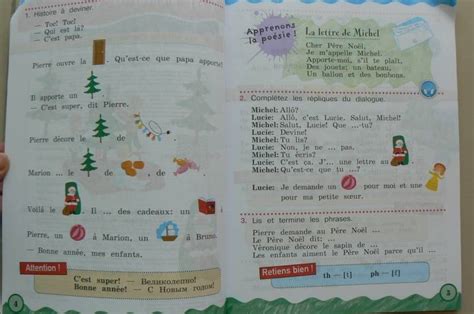 1. Histoire à deviner.
— Toc! Toc!
— Qui est là?
— C'est papa.
Pierre ouvre la . Qu'est-ce que papa apporte?
Il apporte un .
— C'est super, dit Pierre.
Pierre décore le , de , de ,
Marion ... le , de , de .
Voilà le . Il ... des cadeaux: un
Pierre, un à Marion, un à Bruno.
— Bonne année, mes enfants.
Attention !
C'est super! — Великолепно!
Bonne année! — С Новым годом!
4
Apprenons
la poésie !
La lettre de Michel
Cher Père Noël,
Je m'appelle Michel.
Apporte-moi, s'il te plaît,
Des jouets: un bateau,
Un ballon et des bonbons.
2. Complétez les répliques du dialogue.
Michel: Allô?
Lucie: Allô, c'est Lucie. Salut, Michel!
Michel: Salut, Lucie! Que ...-tu?
Lucie: Devine!
Michel: Tu lis?
Lucie: Non, je ne ... pas.
Michel: Tu écris?
Lucie: C'est ça. J'... une lettre au
Michel: Qu'est-ce que tu ... ?
Lucie: Je demande un pour moi et une
pour ma petite sœur.
3. Lis et termine les phrases.
Pierre demande au Père Noël ...
Le Père Noël dit: ...
Véronique décore le sapin de ...
Les enfants aiment le Père Noël parce qu'il ...
Retiens bien !
th — [t] ph — [f]